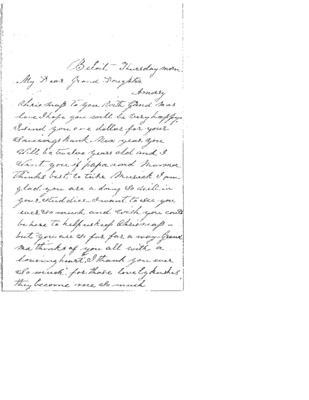 Beloit Thursday morn
My Dear Grand Daughter
Amary
Chrismass to you with Grand mas
love I hope you will be very happy
I send you one dollar for your
saveings bank New year you
will be twelve years old and I
want you if papa and Mamma
thinks best to take Musick I am
glad you are a doing so well in
your studdies I want to see you
ever so much and wish you could
be here to help us keep Chrismass
but you are so far far a way Grand
ma thinks of you all with a
loveing heart, I thank you ever
so much for those lovely
they become me so much